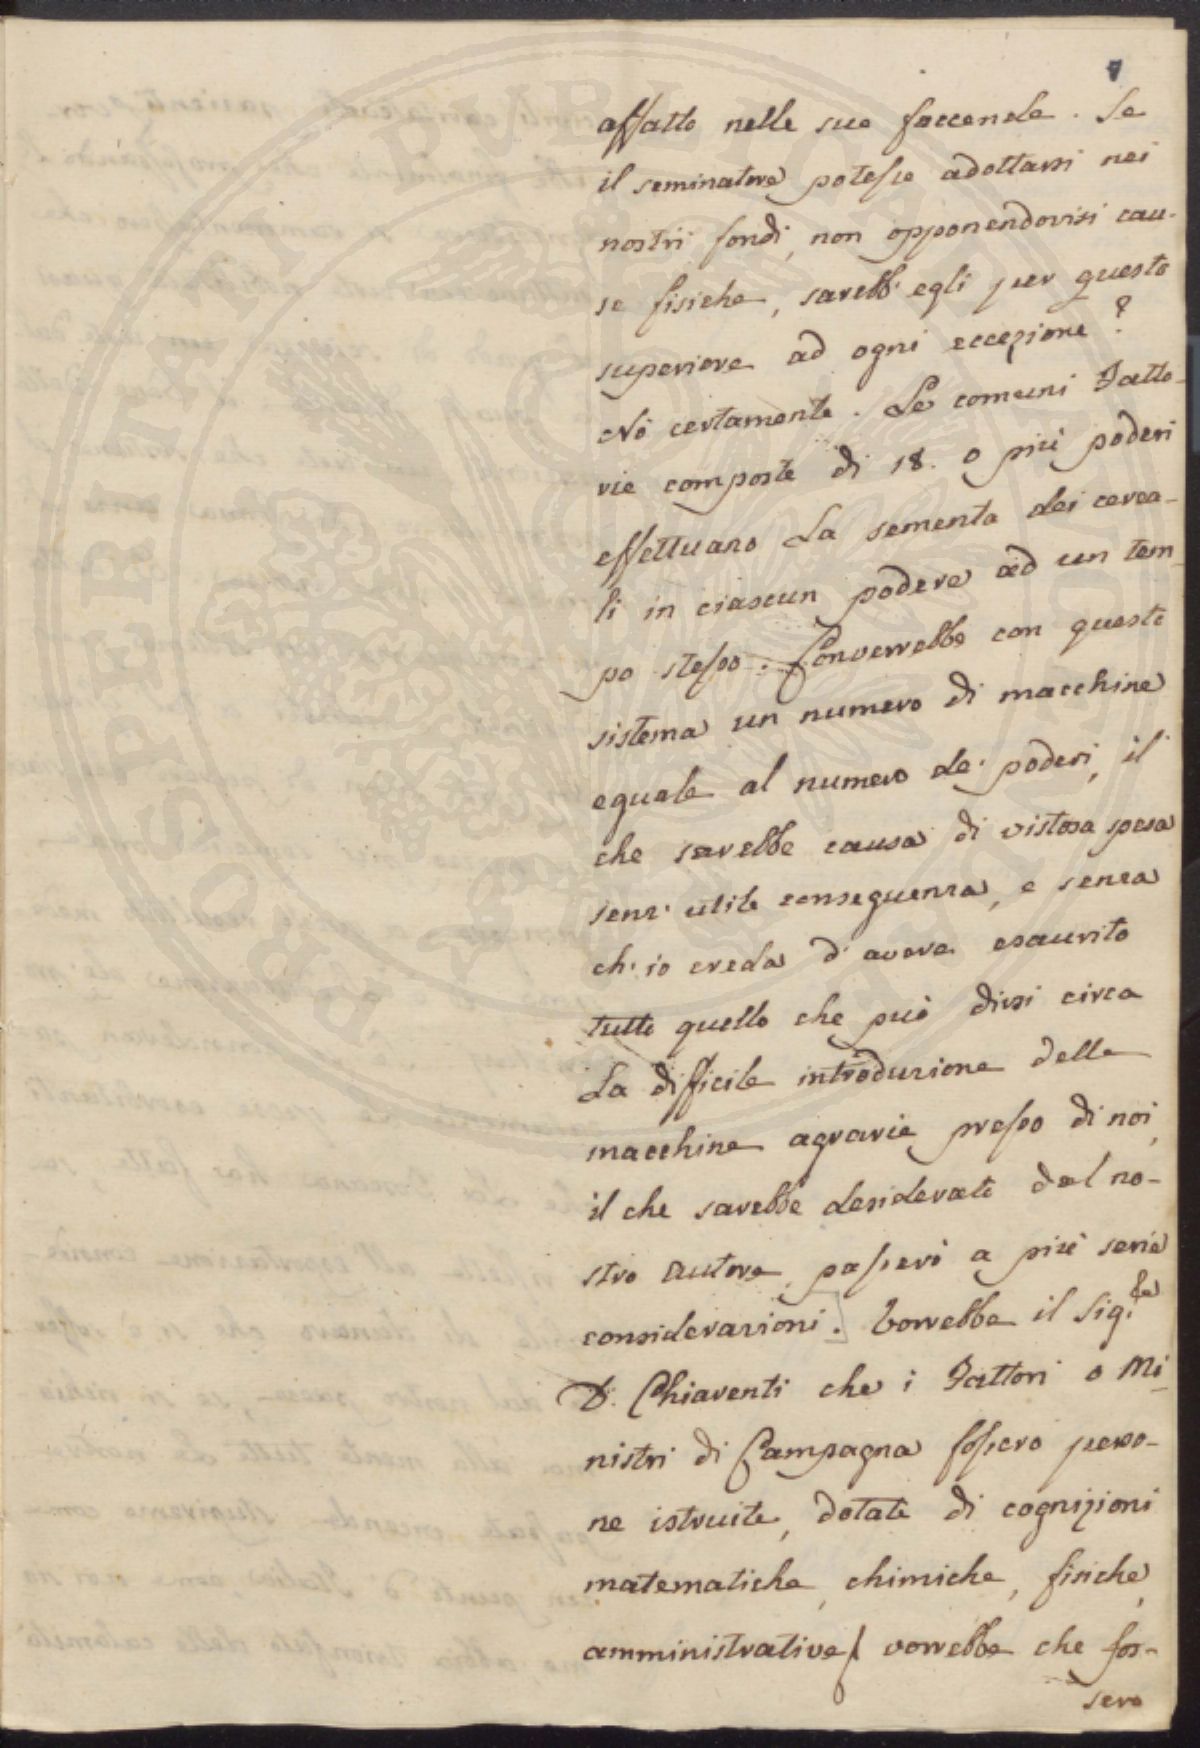 7
affatto nelle sue faccende. Se
il seminatore potesse adottarsi nei
nostri fondi, non opponendovisi cau-
se fisiche, sarebb' egli per questo
superiore ad ogni eccezione?
Nò certamente. Le comuni Fatto-
rie composte di 18. o più poderi
effettuano la sementa dei cerea-
li in ciascun podere ad un tem-
po stesso. Converrebbe con questo
sistema un numero di macchine
eguale al numero de' poderi, il
che sarebbe causa di vistosa spesa
senz' utile conseguenza, e senza
ch' io creda d' avere esaurito
tutto quello che può dirsi circa
la difficile introduzione delle
macchine agrarie presso di noi,
il che sarebbe desiderato dal no-
stro autore, passerò a più serie
considerazioni. Vorrebbe il Sig.re
D. Chiarenti che i Fattori o Mi-
nistri di Campagna fossero perso-
ne istruite, dotate di cognizioni
matematiche, chimiche, fisiche,
amministrative, vorrebbe che fos-
sero
PROSPERITATI PUBLICAE AUGENDAE